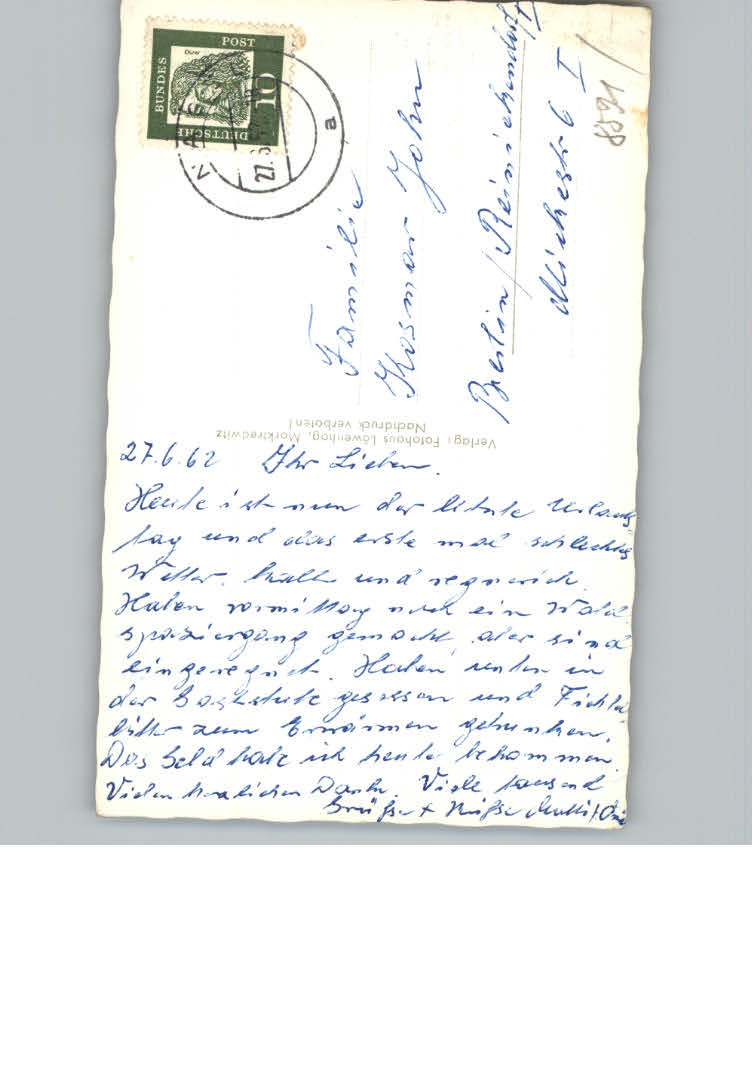 DEUTSCHE
BUNDES
POST
10
Dürer
27.6.
a
8591
Familie
Kosmar John
Berlin/Reinickendorf
I
Verlag: Fotohaus Löwenhag, Marktredwitz
Nachdruck verboten!
27.6.62 Ihr Lieben.
Heute ist nun der letzte Urlaubs-
tag und das erste mal schlechtes
Wetter. kalt und regnerisch.
Haben vormittag noch ein Wald
spaziergang gemacht, aber sind
eingeregnet. Haben unten in
der Gaststube gesessen und Fichtel
bitter zum Erwärmen getrunken.
Das Geld habe ich heute bekommen
Vielen herzlichen Dank. Viele tausend
Grüße + Küße Mutti +